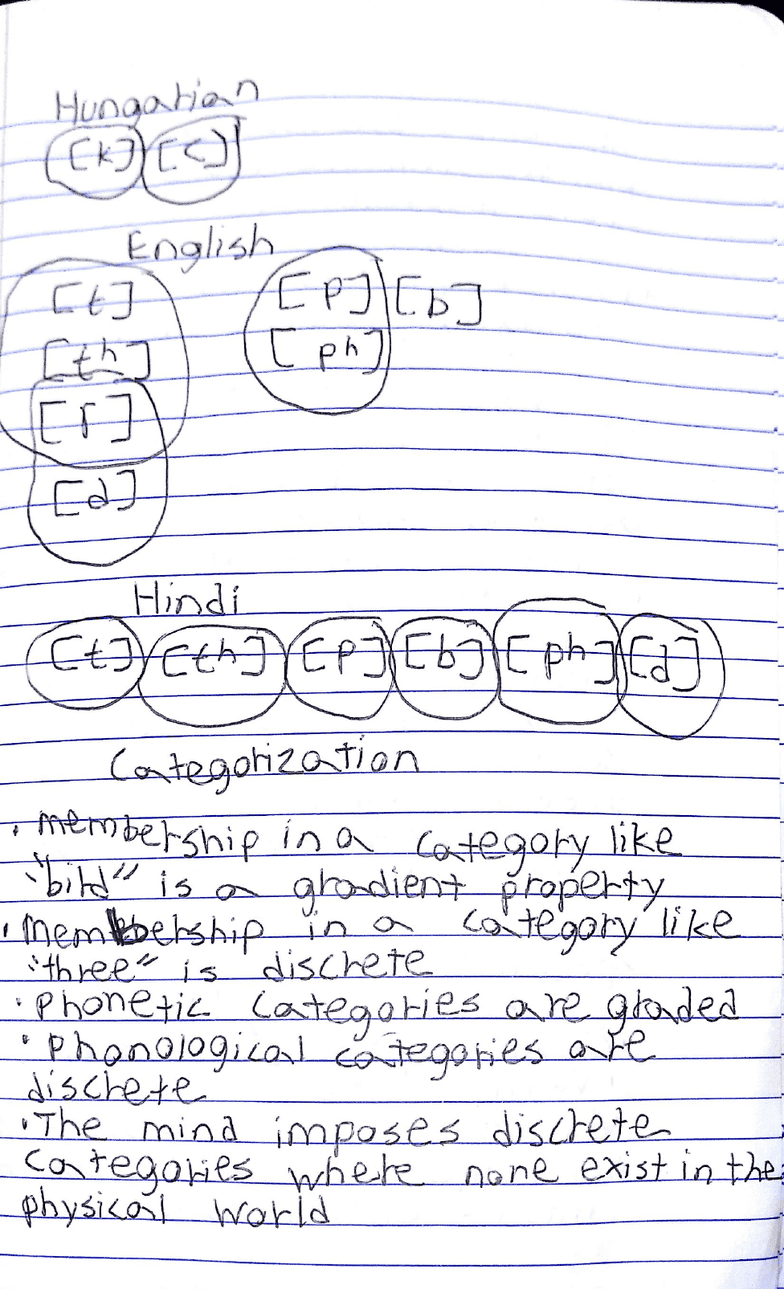 Hungarian
[k] [c]
English
[t] [p] [b]
[th] [ph]
[ɾ]
[d]
Hindi
[t] [th] [p] [b] [ph] [d]
Categorization
• membership in a category like
"bird" is a gradient property
• membership in a category like
"three" is discrete
• phonetic categories are graded
• phonological categories are
discrete
• The mind imposes discrete
categories where none exist in the
physical world